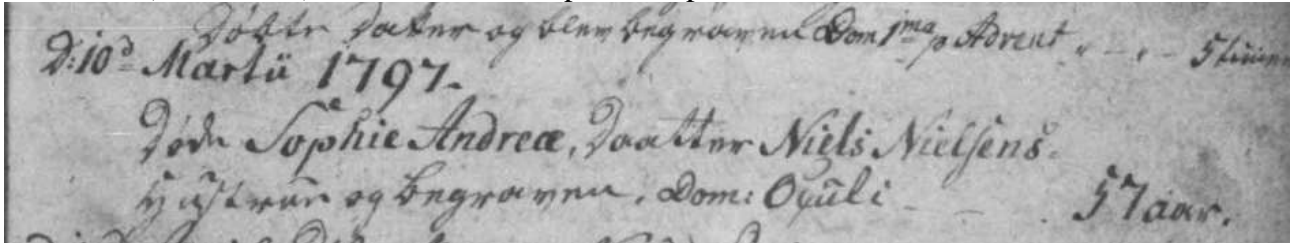 døbte datter og blev begraven Dom 1ma p Advent „ – „ – 5 timer
D: 10d Martii 1797.
døde Sophie Andreæ, daatter Niels Nielsens
Hustrue og begraven. Dom: Oculi – – . 57 aar.